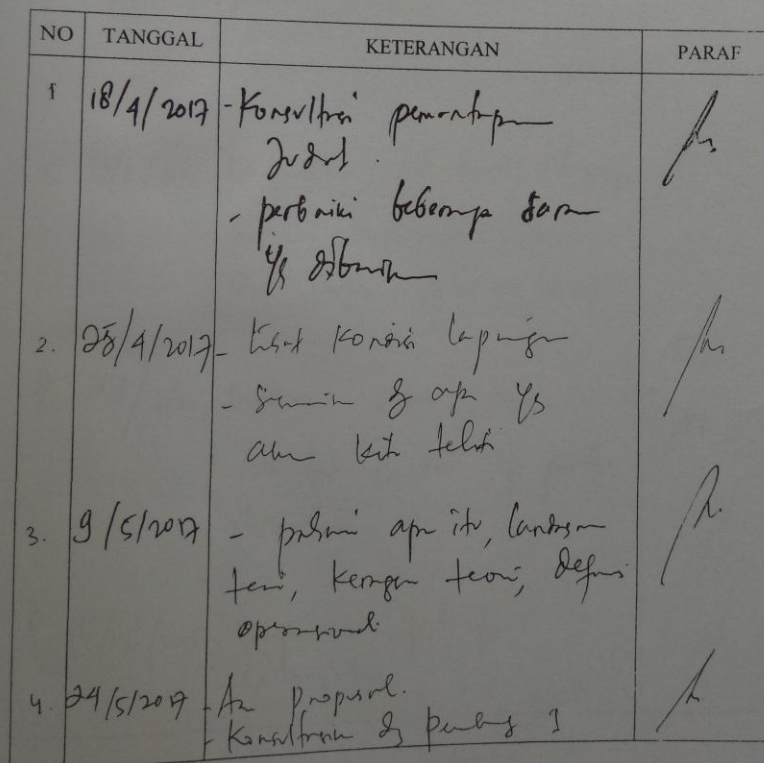 NO TANGGAL KETERANGAN PARAF
1 18/4/2017 - Konsultasi pemantapan
Judul.
- perbaiki beberapa saran
yg diberikan
2. 25/4/2017 - lihat kondisi lapangan
- Sesuaikan dg apa yg
akan kita teliti
3. 9/5/2017 - pahami apa itu, landasan
teori, kerangka teori, definisi
operasional.
4. 24/5/2017 - Acc proposal.
- Konsultasikan dg pembimbing I